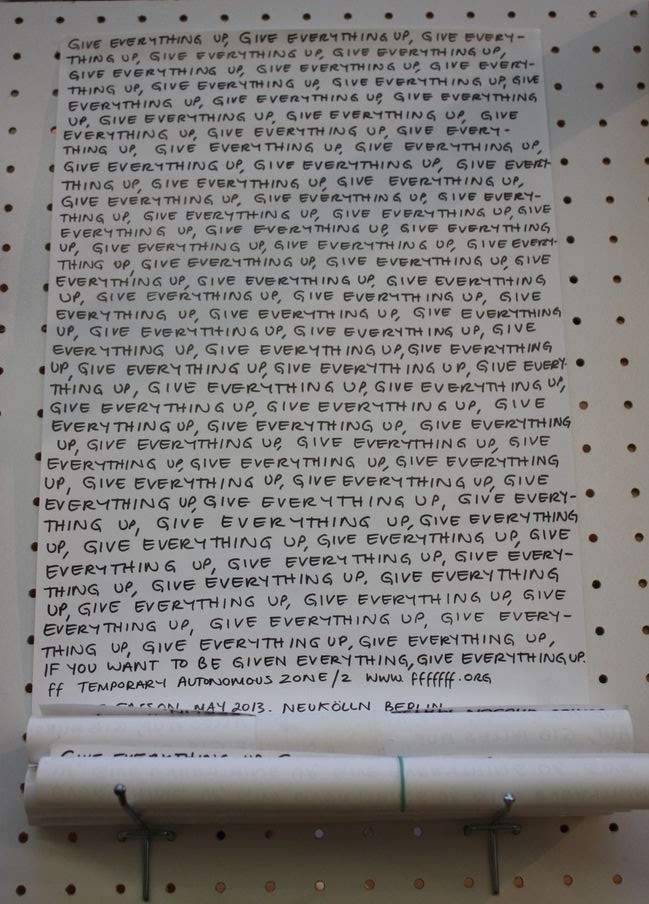 GIVE EVERYTHING UP, GIVE EVERYTHING UP, GIVE EVERY-
THING UP, GIVE EVERYTHING UP, GIVE EVERYTHING UP,
GIVE EVERYTHING UP, GIVE EVERYTHING UP, GIVE EVERY-
THING UP, GIVE EVERYTHING UP, GIVE EVERYTHING UP, GIVE
EVERYTHING UP, GIVE EVERYTHING UP, GIVE EVERYTHING
UP, GIVE EVERYTHING UP, GIVE EVERYTHING UP, GIVE
EVERYTHING UP, GIVE EVERYTHING UP, GIVE EVERY-
THING UP, GIVE EVERYTHING UP, GIVE EVERYTHING UP,
GIVE EVERYTHING UP, GIVE EVERYTHING UP, GIVE EVERY-
THING UP, GIVE EVERYTHING UP, GIVE EVERYTHING UP,
GIVE EVERYTHING UP, GIVE EVERYTHING UP, GIVE EVERY-
THING UP, GIVE EVERYTHING UP, GIVE EVERYTHING UP, GIVE
EVERYTHING UP, GIVE EVERYTHING UP, GIVE EVERYTHING
UP, GIVE EVERYTHING UP, GIVE EVERYTHING UP, GIVE EVERY-
THING UP, GIVE EVERYTHING UP, GIVE EVERYTHING UP, GIVE
EVERYTHING UP, GIVE EVERYTHING UP, GIVE EVERYTHING
UP, GIVE EVERYTHING UP, GIVE EVERYTHING UP, GIVE
EVERYTHING UP, GIVE EVERYTHING UP, GIVE EVERYTHING
UP, GIVE EVERYTHING UP, GIVE EVERYTHING UP, GIVE
EVERYTHING UP, GIVE EVERYTHING UP, GIVE EVERYTHING
UP, GIVE EVERYTHING UP, GIVE EVERYTHING UP, GIVE EVERY-
THING UP, GIVE EVERYTHING UP, GIVE EVERYTHING UP,
GIVE EVERYTHING UP, GIVE EVERYTHING UP, GIVE
EVERYTHING UP, GIVE EVERYTHING UP, GIVE EVERYTHING
UP, GIVE EVERYTHING UP, GIVE EVERYTHING UP, GIVE
EVERYTHING UP, GIVE EVERYTHING UP, GIVE EVERYTHING
UP, GIVE EVERYTHING UP, GIVE EVERYTHING UP, GIVE
EVERYTHING UP, GIVE EVERYTHING UP, GIVE EVERY-
THING UP, GIVE EVERYTHING UP, GIVE EVERYTHING
UP, GIVE EVERYTHING UP, GIVE EVERYTHING UP, GIVE
EVERYTHING UP, GIVE EVERYTHING UP, GIVE EVERY-
THING UP, GIVE EVERYTHING UP. GIVE EVERYTHING
UP, GIVE EVERYTHING UP, GIVE EVERYTHING UP, GIVE
EVERYTHING UP, GIVE EVERYTHING UP, GIVE EVERY-
THING UP, GIVE EVERYTHING UP, GIVE EVERYTHING UP,
IF YOU WANT TO BE GIVEN EVERYTHING, GIVE EVERYTHING UP.
ff TEMPORARY AUTONOMOUS ZONE/2 WWW.fffffff.ORG
MAY 2013. NEUKÖLLN BERLIN
GIVE EVERYTHING UP